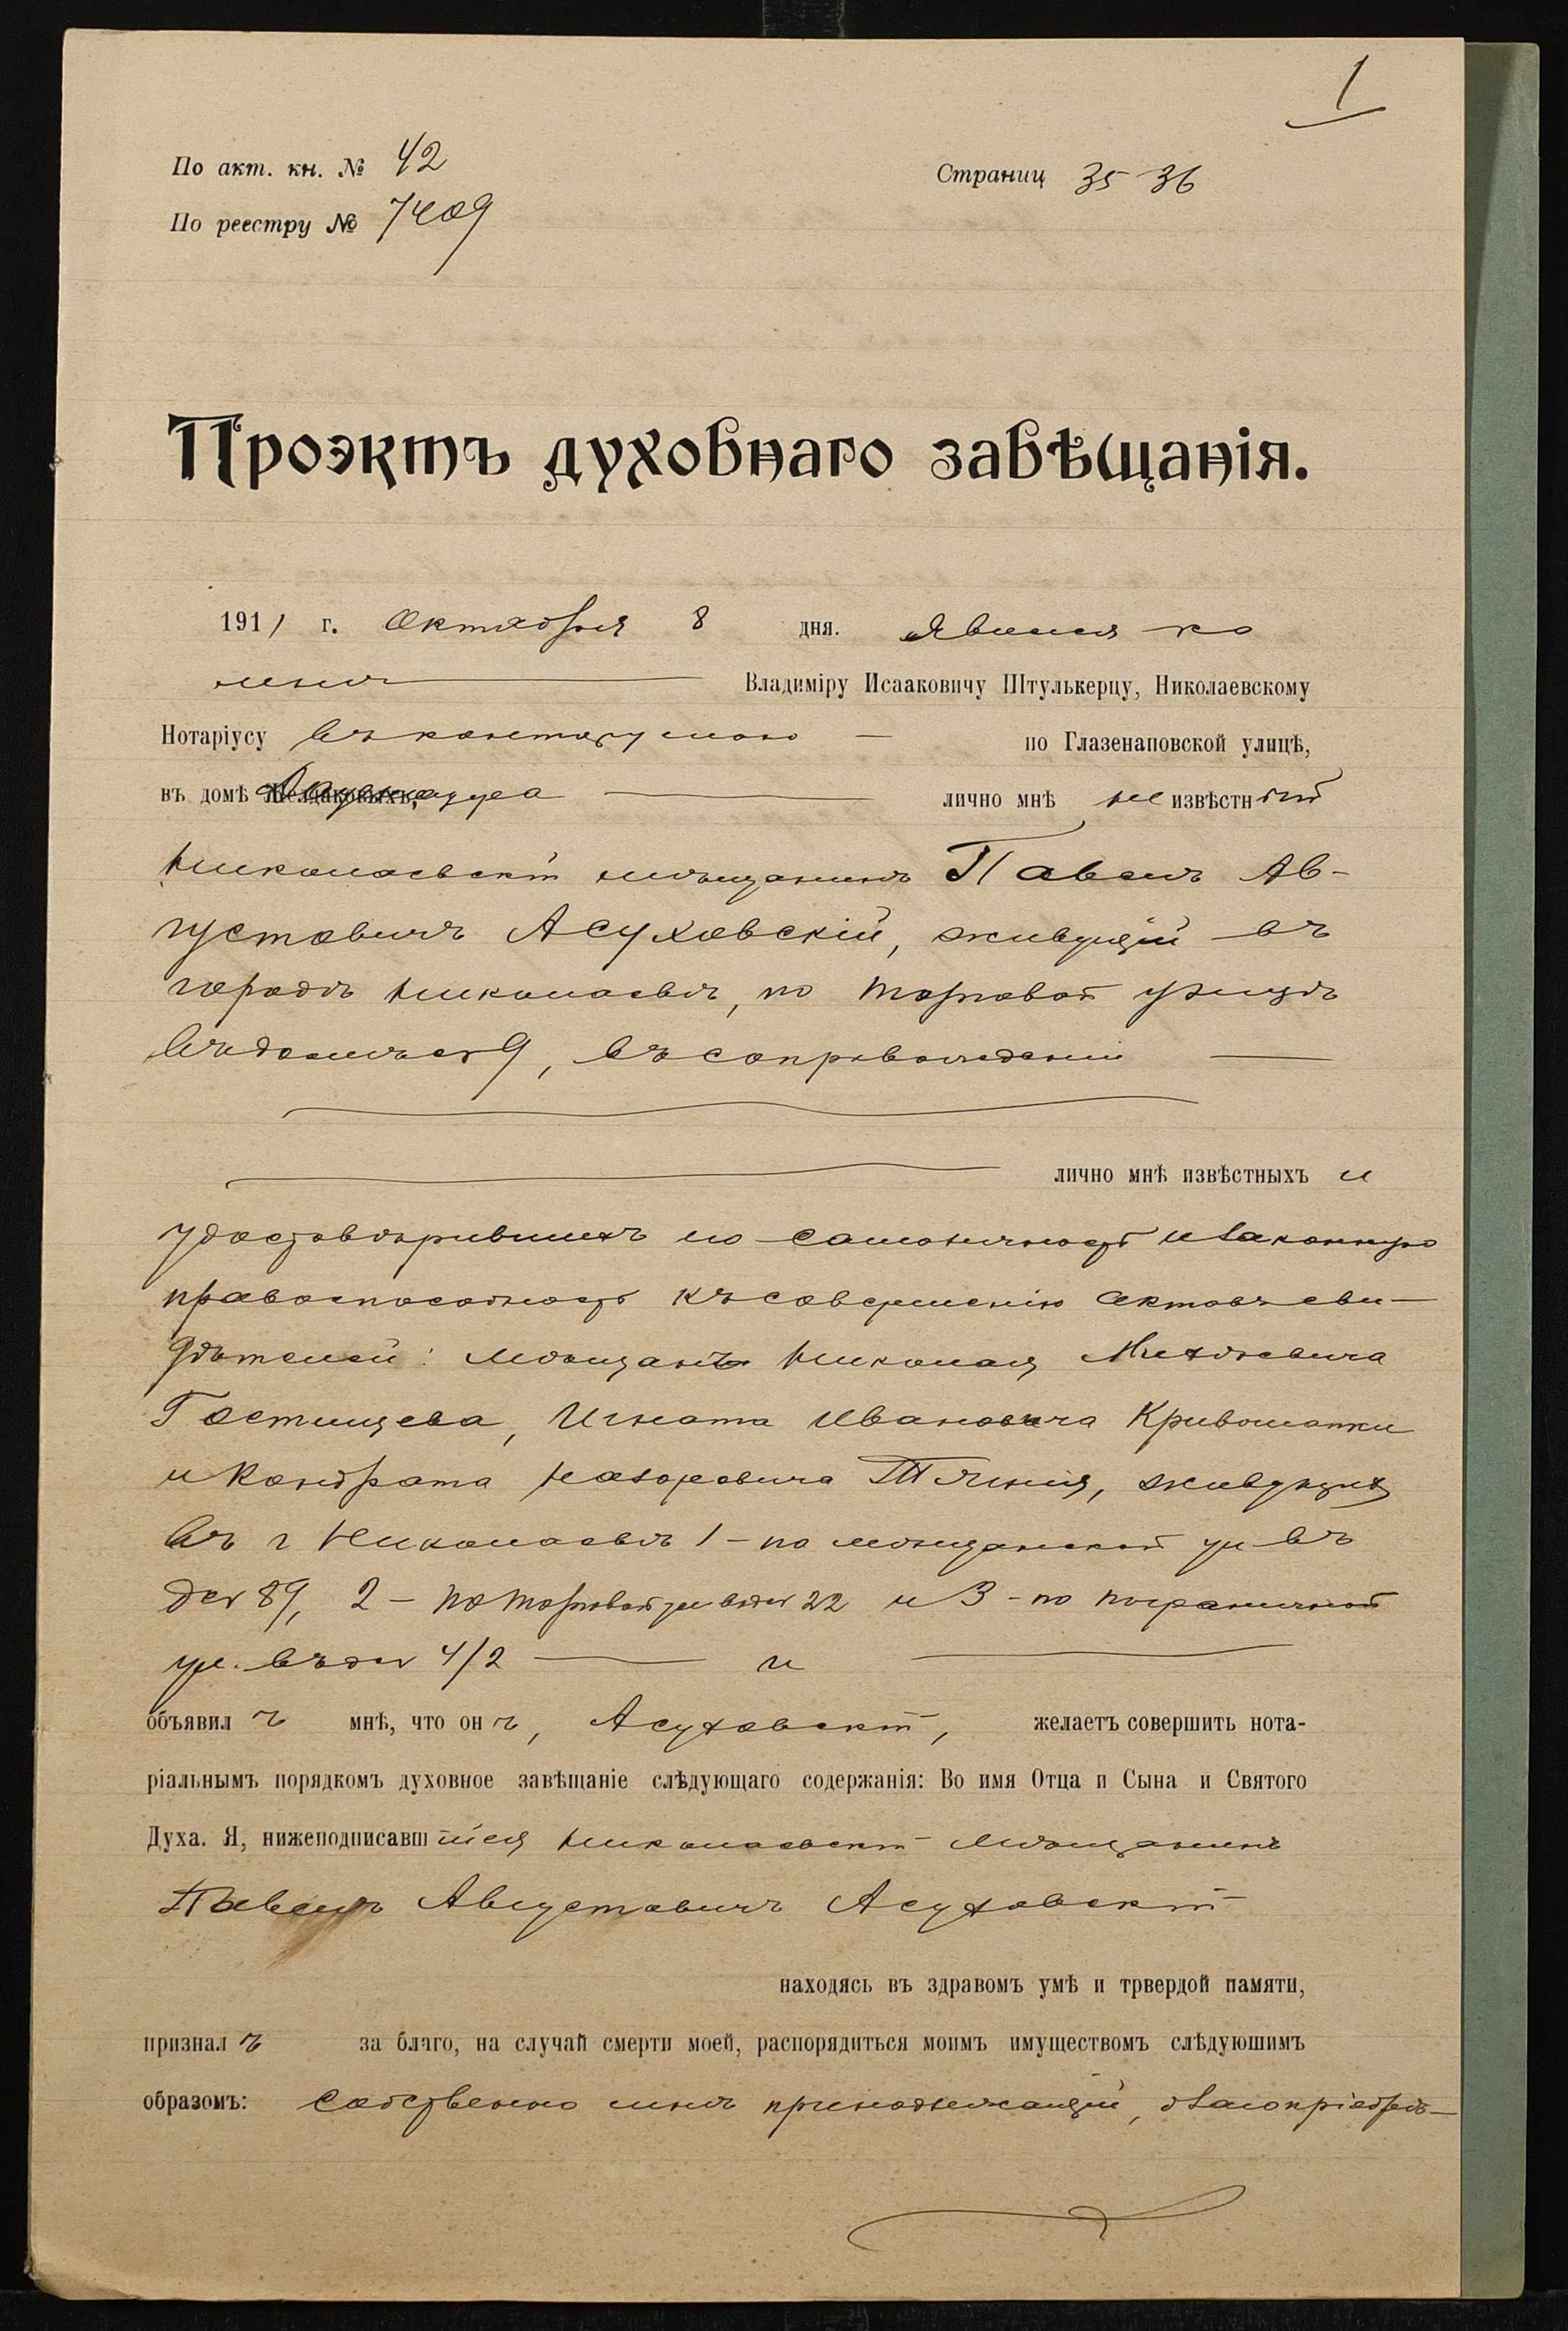 1
По акт. кн. № 42
Страниц 35 36
По реестру № 7409
Проэктъ духовнаго завѣщанія.
1911 г. Октября 8 дня. Явился ко
мнѣ Владиміру Исааковичу Штулькерцу, Николаевскому
Нотаріусу въ контору мою — по Глазенаповской улицѣ,
въ домѣ лично мнѣ неизвѣстный
Николаевскій мѣщанинъ Павелъ Ав-
густовичъ Асуховскій, живущій въ
городѣ Николаевѣ, по Торговой улицѣ
въ домѣ № 9, въ сопровожденіи —
лично мнѣ извѣстныхъ и
удостовѣрившихъ его самоличность и законную
правоспособность къ совершенію актовъ сви-
дѣтелей: мѣщанъ Николая Михѣевича
Гостищева, Игната Ивановича Кривошапки
и Кондрата Назаровича живущихъ
въ г Николаевѣ 1 - по мѣщанской ул въ
д № 89, 2 - по Торговой ул въ д № 22 и 3 - по пограничной
ул. въ д № 4/2 — и —
объявилъ мнѣ, что онъ, Асуховскій, желаетъ совершить нота-
ріальнымъ порядкомъ духовное завѣщаніе слѣдующаго содержанія: Во имя Отца и Сына и Святого
Духа. Я, нижеподписавшійся Николаевскій мѣщанинъ
Павелъ Августовичъ Асуховскій
находясь въ здравомъ умѣ и трвердой памяти,
призналъ за благо, на случай смерти моей, распорядиться моимъ имуществомъ слѣдуюшимъ
образомъ: собственно мнѣ принадлежащій, благопріобрѣ-